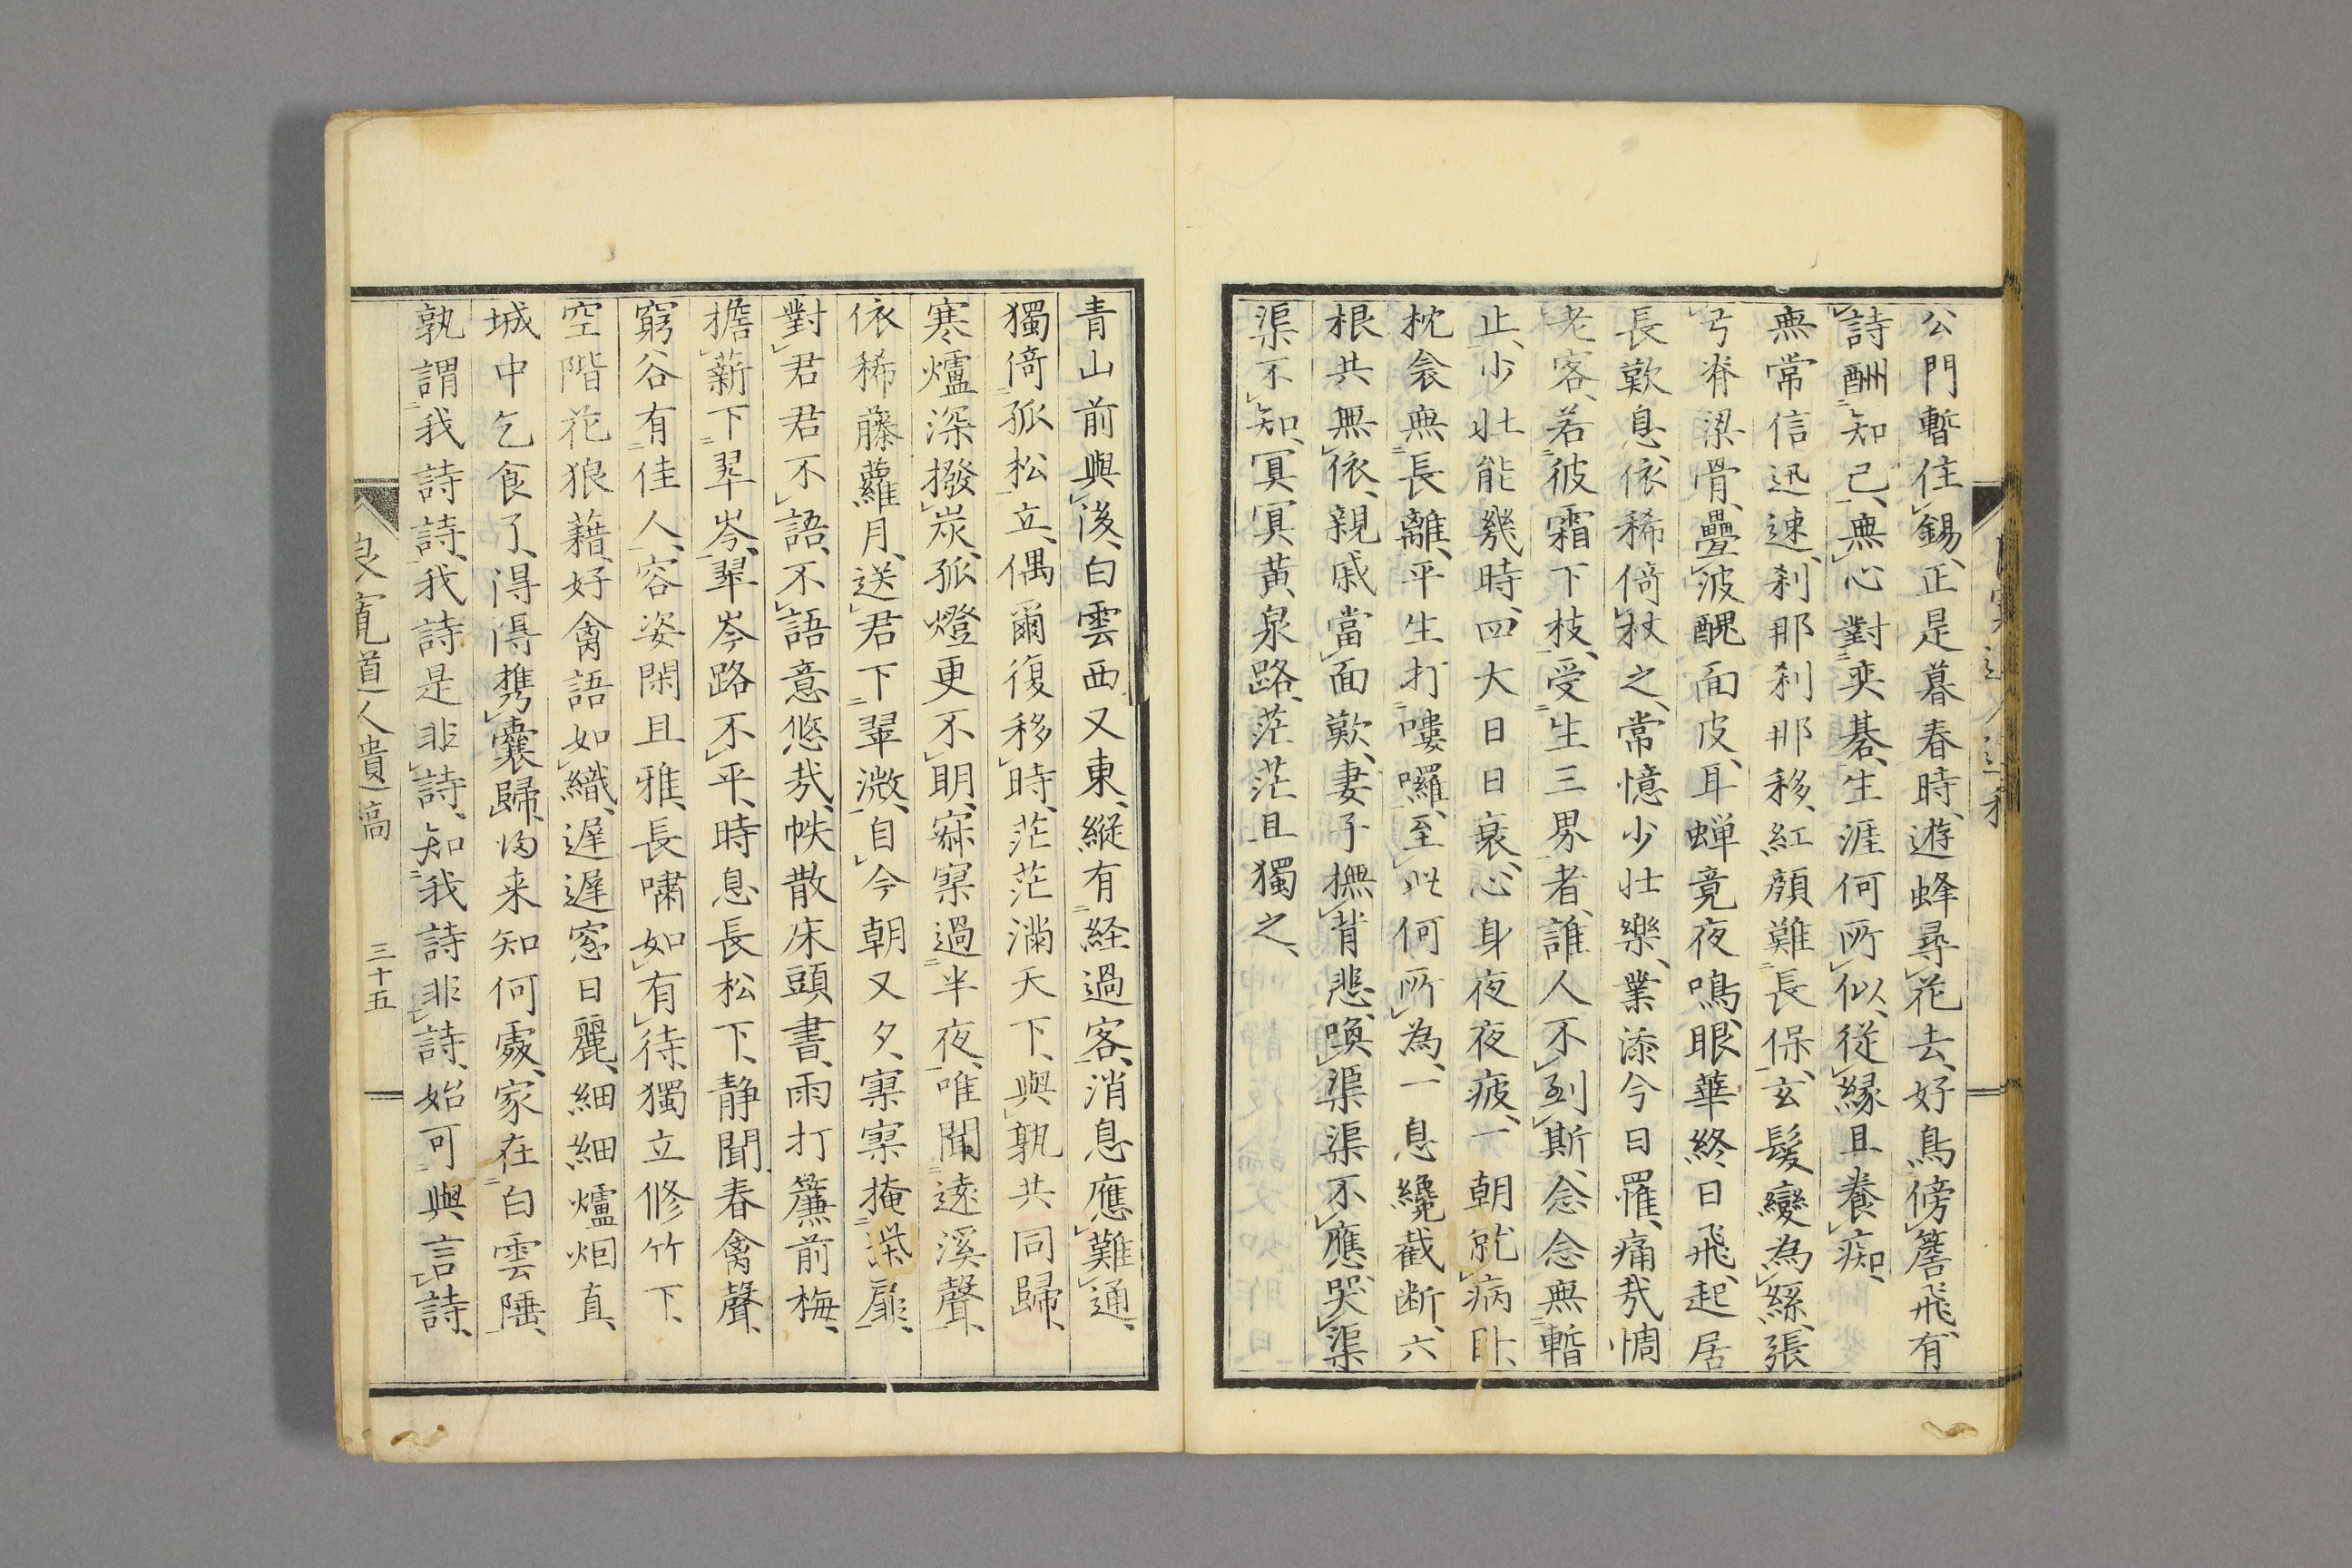 公門暫住錫、正是暮春時、遊蜂尋花去、好鳥傍簷飛、有
詩酬知己、無心對奕棊、生涯何所似、従縁且養痴、
無常信迅速、刹那刹那移、紅顔難長保、玄髪變為絲、張
弓脊梁骨、疊波醜面皮、耳蝉竟夜鳴、眼華終日飛、起居
長歎息、依稀倚杖之、常憶少壮樂、業添今日罹、痛哉惆
老客、若彼霜下枝、受生三界者、誰人不到斯、念念無暫
止、少壮能幾時、四大日日衰、心身夜夜疲、一朝就病臥、
枕衾無長離、平生打嘍囉、至此何所為、一息纔截断、六
根共無依、親戚當面歎、妻子撫背悲、喚渠渠不應、哭渠
渠不知、冥冥黄泉路、茫茫且獨之、
青山前與後、白雲西又東、縦有経過客、消息應難通、
獨倚孤松立、偶爾復移時、茫茫満天下、與孰共同歸、
寒爐深撥炭、孤燈更不明、寂寞過半夜、唯聞遠溪聲、
依稀藤蘿月、送君下翠微、自今朝又夕、寞寞掩柴扉、
對君君不語、不語意悠哉、帙散床頭書、雨打簾前梅、
擔薪下翠岑、翠岑路不平、時息長松下、静聞春禽聲、
窮谷有佳人、容姿閑且雅、長嘯如有待、獨立修竹下、
空階花狼藉、好禽語如織、遅遅窓日麗、細細爐烟直、
城中乞食了、得得携嚢歸、歸来知何處、家在白雲陲、
孰謂我詩詩、我詩是非詩、知我詩非詩、始可與言詩、
良寛道人遺稿
三十五